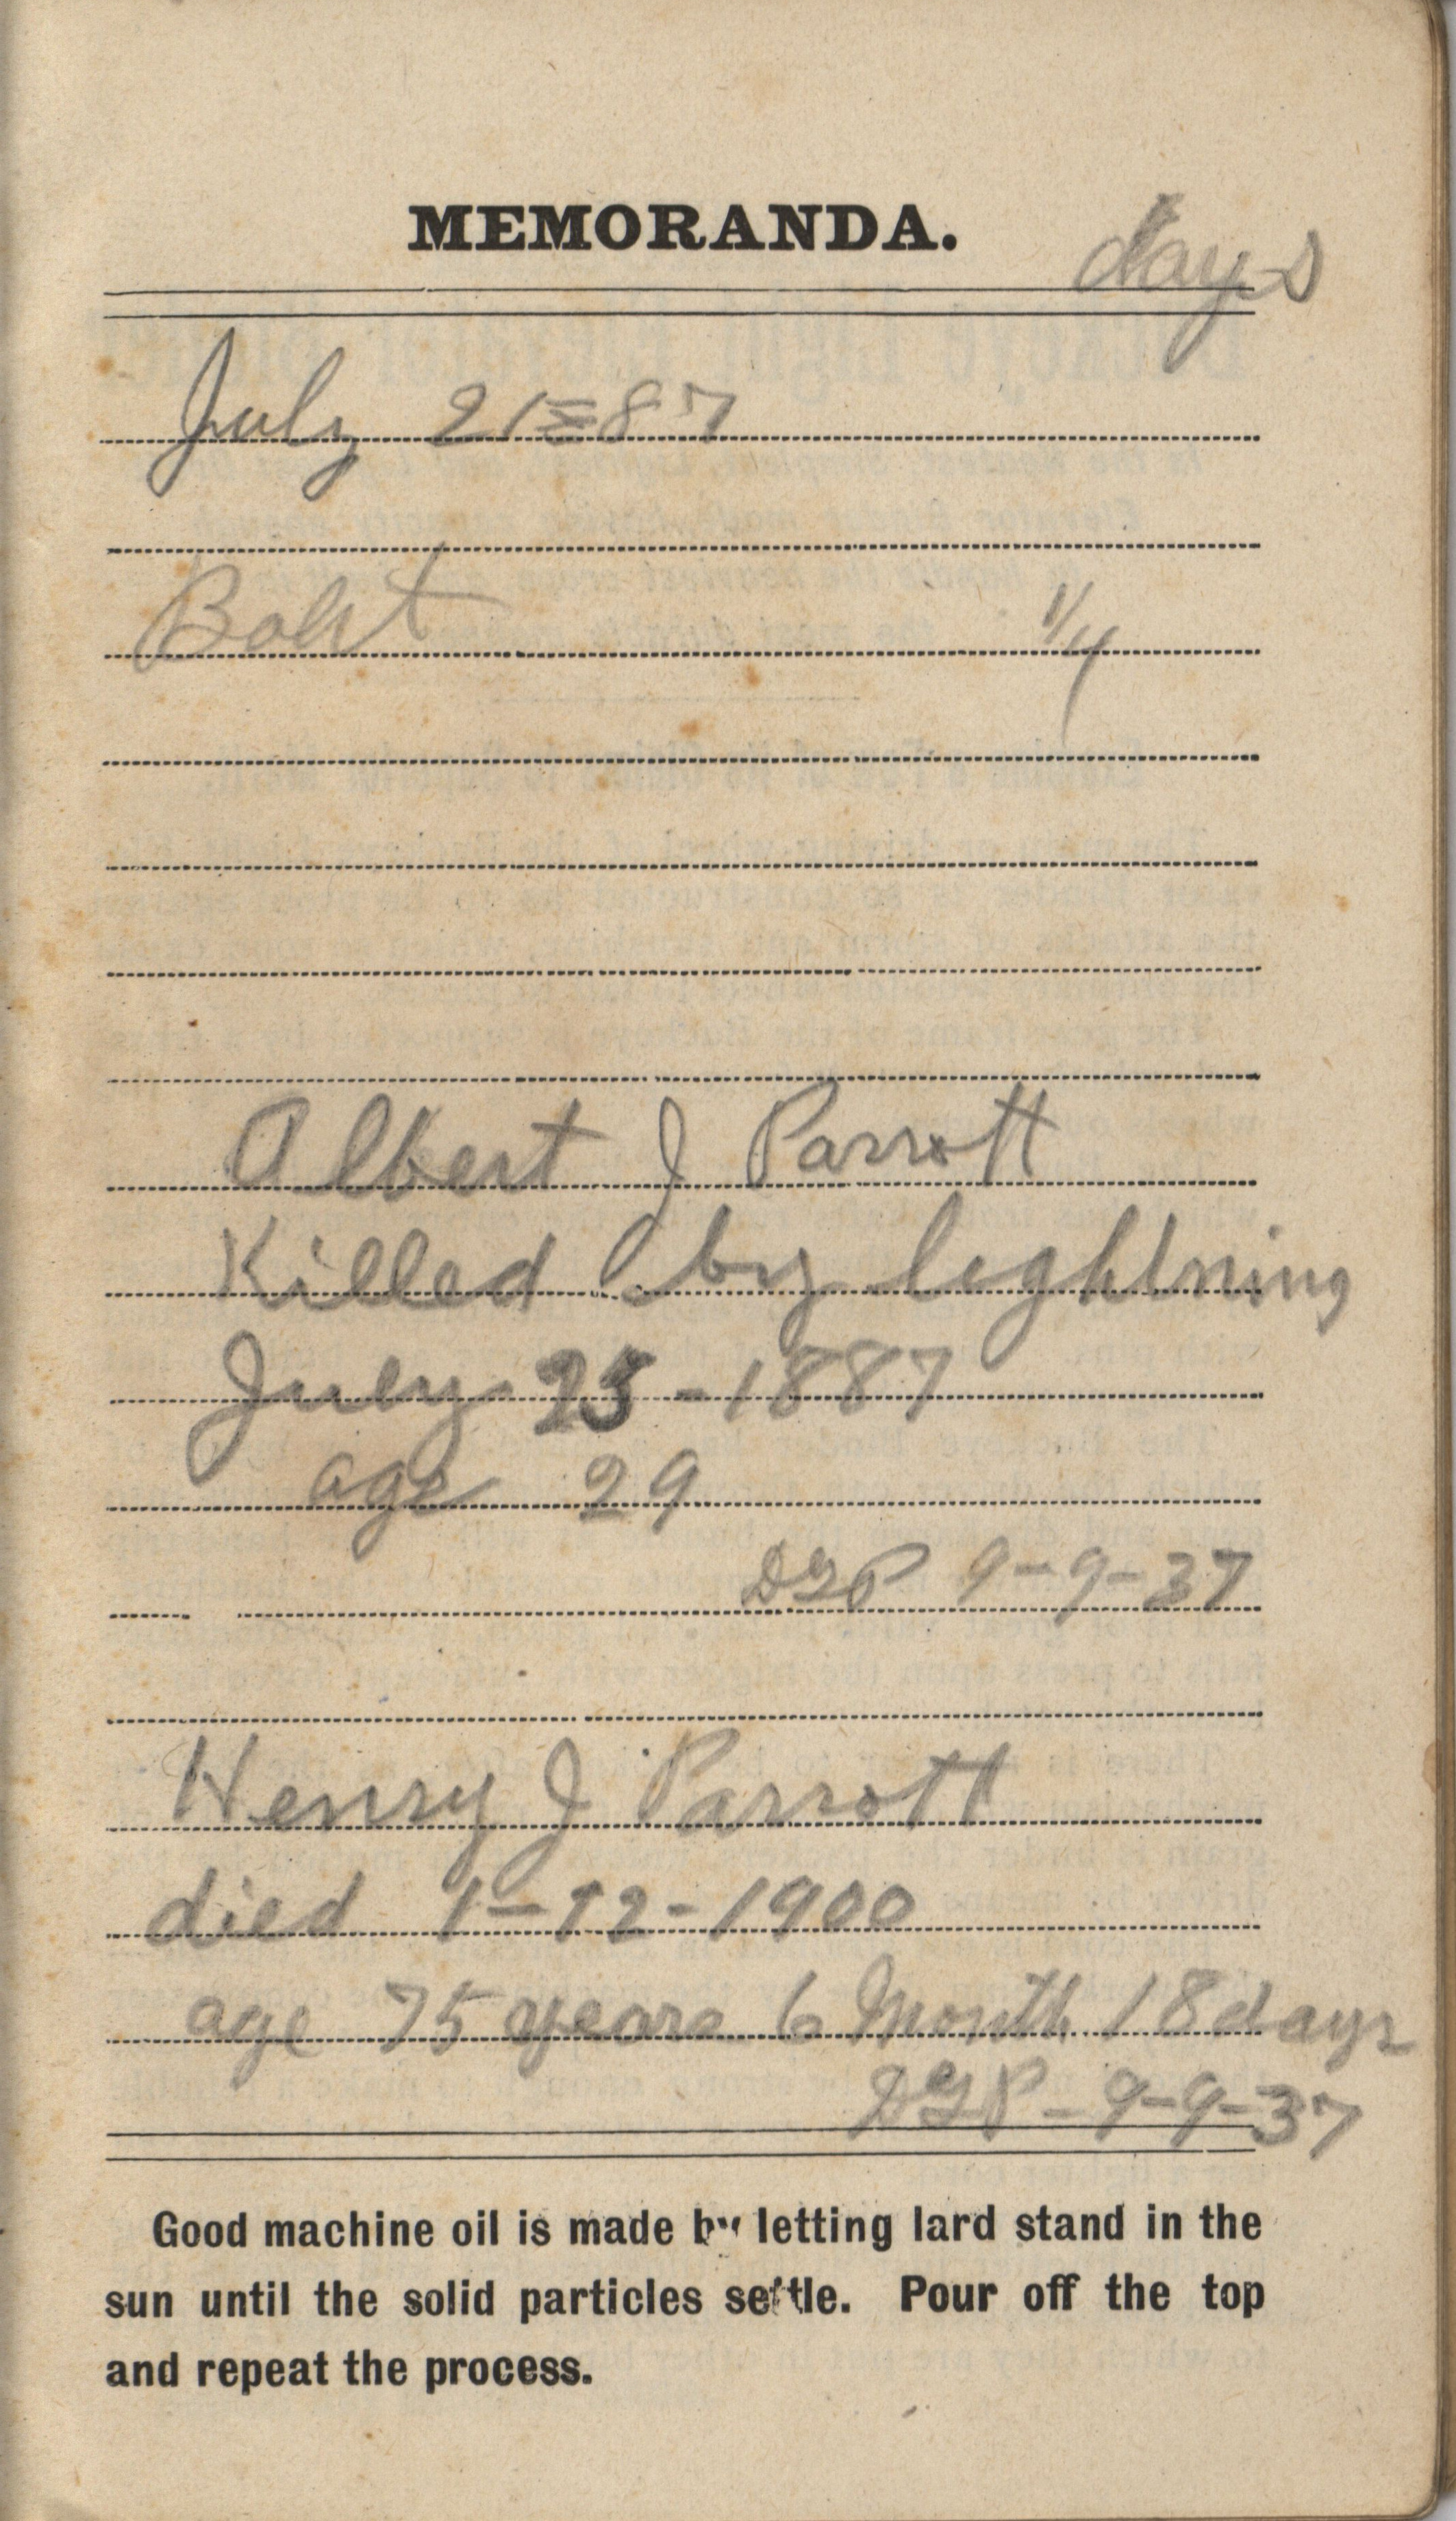 MEMORANDA.
days
July 21=87
¼
Albert J Parrott
Killed by lightning
July 25-1887
age 29
DGP 9-9-37
Henry J Parrott
died 1-12-1900
age 75 years 6 Month 18 days
DGP-9-9-37
Good machine oil is made by letting lard stand in the
sun until the solid particles settle. Pour off the top
and repeat the process.